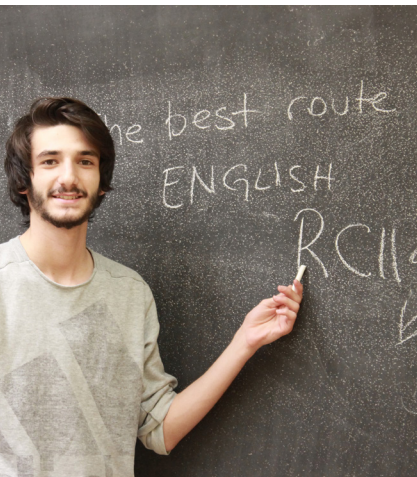 he best route
ENGLISH
RC